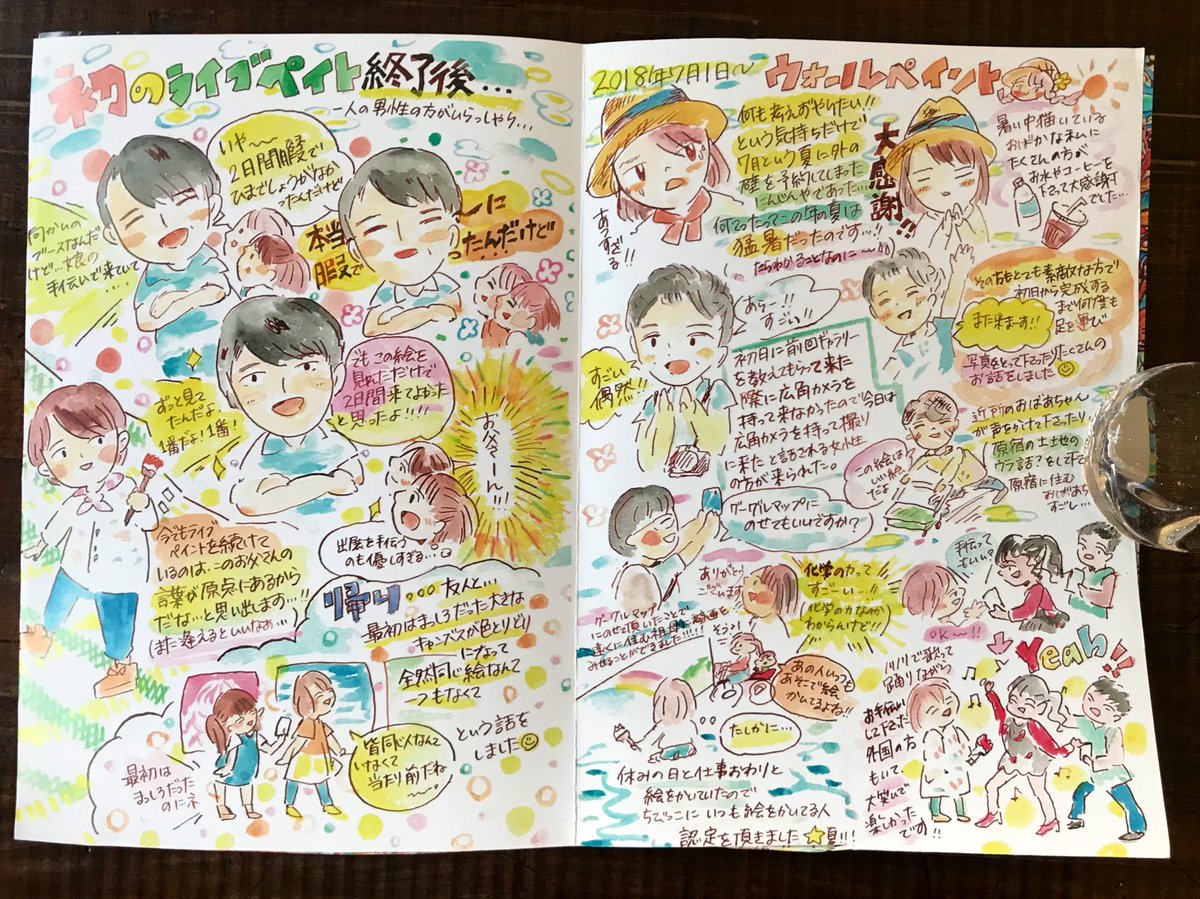 初のライブペイント終了後...
一人の男性の方がいらっしゃら...
いや〜〜
2日間暇で
ひまでしょうがなか
ったんだけど
何かの
ブースなんだ
けど...娘の
手伝いで来ていて
....
本当〜に
暇で
たんだけど
ずっと見て
たんだよ
1番だよ!1番!
この絵を
見れただけで
2日間来てよかった
と思ったよ!!!!
お父さーん!!!
出展を手伝う
のも優しすぎる...
今でもライブ
ペイントを続けて
いるのは、このお父さんの
言葉が原点にあるから
だな...と思い出します...!!
(また逢えるといいなぁ...
帰り...友人と...
最初はまっしろだった大きな
キャンバスが色とりどり
になって
全然同じ絵なんて
一つもなくて
という話を
しました
最初は
まっしろだった
のにネ
皆同じ人なんて
いなくて
当たり前だね
〜〜。
2018年7月1日(〜)
ウォールペイント
何も考えずやりたい!!
という気持ちだけで
7月という夏に外の
壁を予約してしまった
にんじんやであった...
何てったってこの年の夏は
猛暑だったのです...!!
だらわかることなのに〜〜
あっすぎる!!
大感謝!!
暑い中描いている
おばかな私に
たくさんの方が
お水やコーヒーを
下さって大感謝
でした...
あらー!!
すごい!!
すごい
偶然!!
初日に前回ギャラリー
を教えてもらって来た
際に広角カメラを
持って来なかったので今日は
広角カメラを持って撮り
に来たと話される女性
の方が来られた。
その方もとっても素敵な方で
初日から完成する
まで何度も
足を運び
また来まーす!!
写真をとって下さったりたくさんの
お話をしました
近所のおばあちゃん
が声をかけて下さったり
原宿の土地の
ウラ話?をして下
原宿に住む
おばあち
すごし...
この絵は
いい絵
だよ
グーグルマップに
のせてもいいですか?
ありがとう
ございます
グーグルマップ
にのせて頂いたことで
遠くに住む祖母に
みせることができました!!!!!
化学の力って
すごーい...!!
(化学の力なのか
わからんけど!!)
そうう!
あの人いっつも
あそこで絵
かいてるよね!!
たしかに...
休みの日と仕事おわりと
絵をかいていたので
ちびっこに いつも絵をかいてる人
認定を頂きました☆夏!!!
手伝って
もいい?
OK〜!!
Yeah!!
ノリノリで歌って
踊りながら
お手伝い
して下さった
外国の方
もいて
大笑いで
楽しかった
です!!